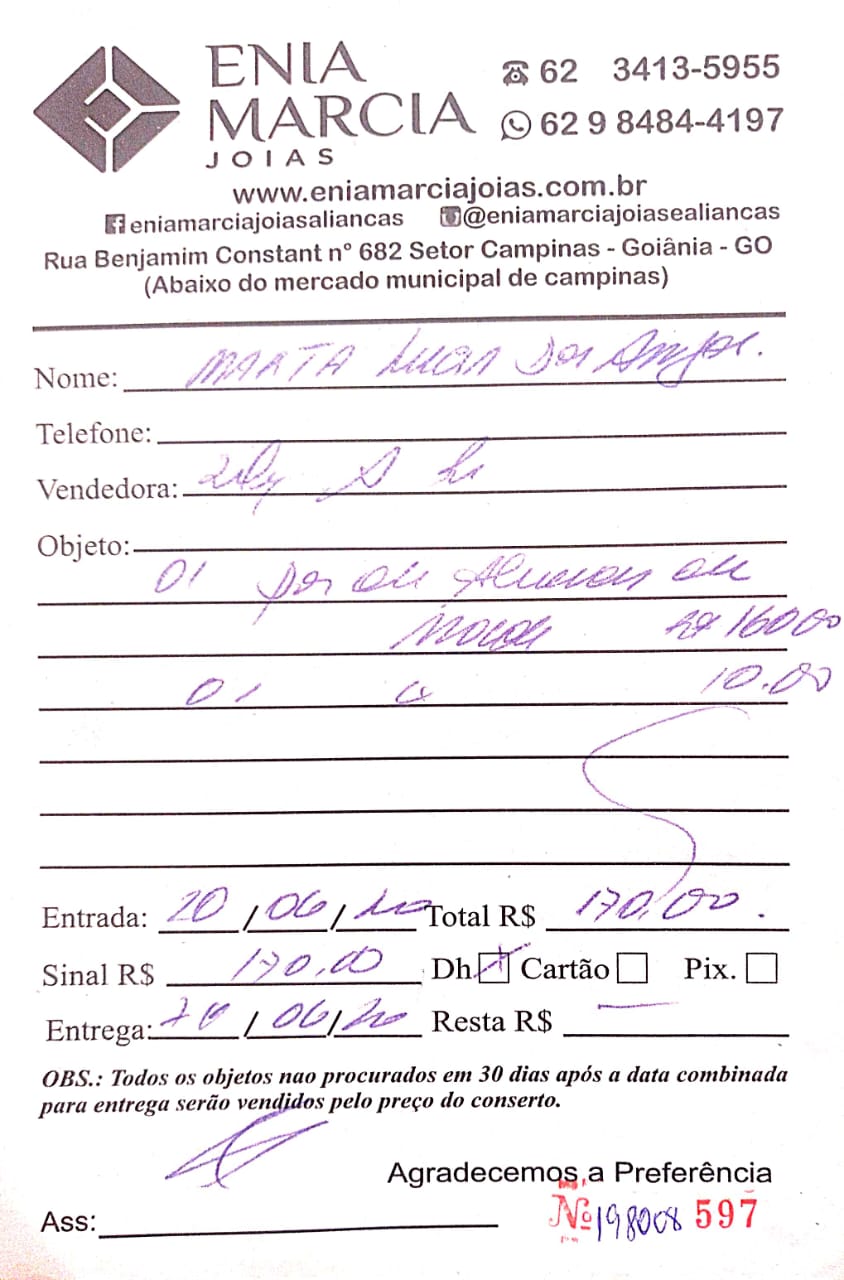 ENIA
MARCIA
JOIAS
62 3413-5955
62 9 8484-4197
www.eniamarciajoias.com.br
eniamarciajoiasaliancas @eniamarciajoiasealiancas
Rua Benjamim Constant nº 682 Setor Campinas - Goiânia - GO
(Abaixo do mercado municipal de campinas)
Nome: MARTA Lucia Dos Anjos.
Telefone:
Vendedora:
Objeto:
01 Par de Alianças de
Moeda 160 00
01 10.00
Entrada: 20/06/20 Total R$ 170,00.
Sinal R$ 170,00 Dh X Cartão Pix.
Entrega: /06/20 Resta R$ —
OBS.: Todos os objetos nao procurados em 30 dias após a data combinada
para entrega serão vendidos pelo preço do conserto.
Agradecemos a Preferência
Ass:
Nº 198008 597